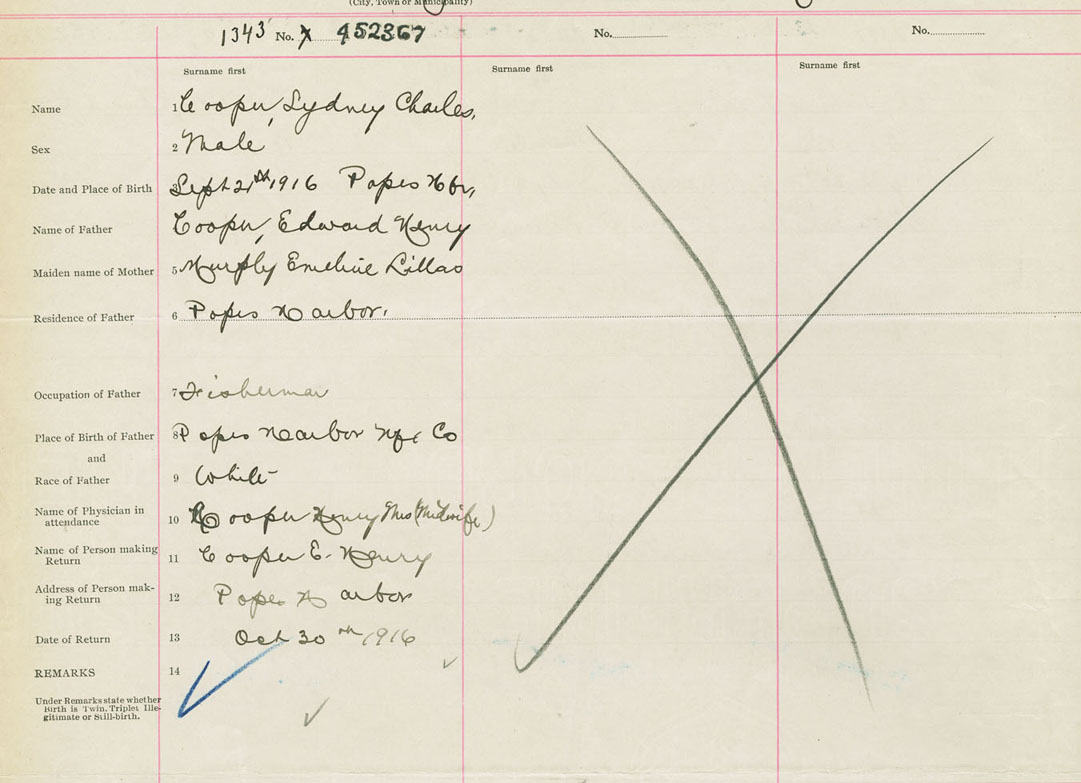 (City, Town or Municipality)
1343 No. 452367 No. No.
Surname first Surname first Surname first
Name 1 Cooper, Sydney Charles,
Sex 2 Male
Date and Place of Birth 3 Sept 21th 1916 Popes Hbr,
Name of Father Cooper, Edward Henry
Maiden name of Mother 5 Murphy Emeline Lillas
Residence of Father 6 Popes Harbor.
Occupation of Father 7 Fisherman
Place of Birth of Father 8 Popes Harbor Hfx Co
and
Race of Father 9 White
Name of Physician in
attendance 10 Cooper Henry Mrs (Midwife)
Name of Person making
Return 11 Cooper E. Henry
Address of Person mak-
ing Return 12 Popes Harbor
Date of Return 13 Oct 30th 1916
REMARKS 14
Under Remarks state whether
Birth is Twin, Triplet Ille-
gitimate or Still-birth.